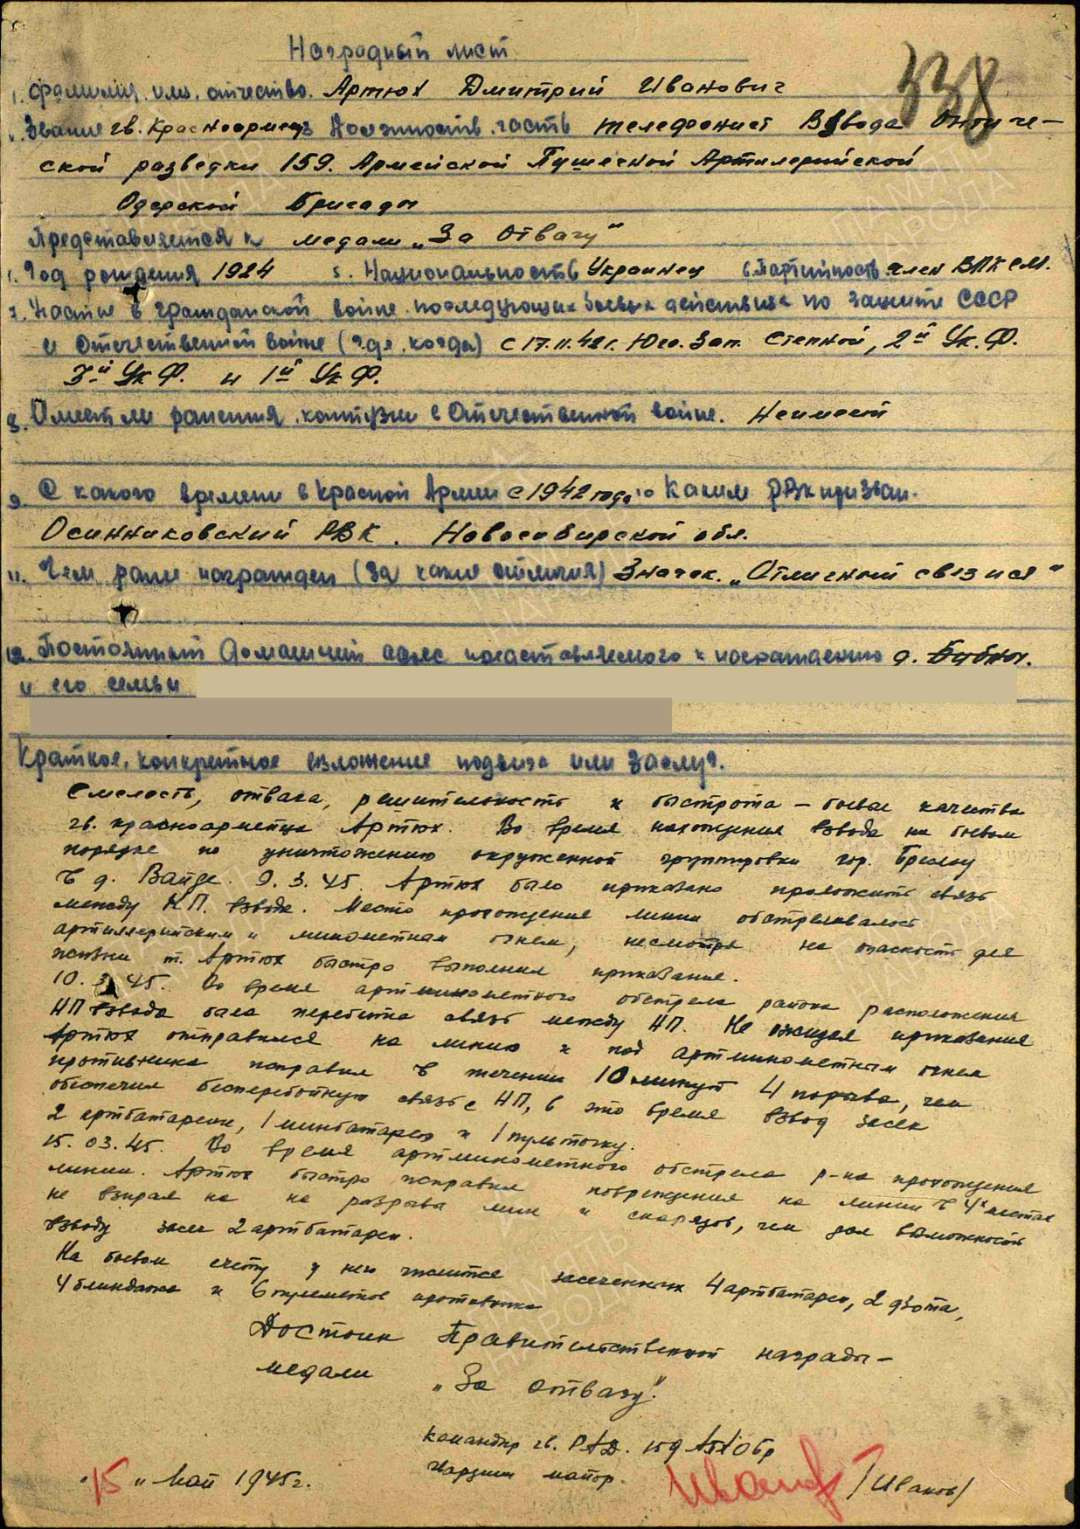 Наградный лист
338
1. Фамилия, имя, отчество. Артюх Дмитрий Иванович
Звание гв. Красноармеец Должность, часть телефонист Взвода Оптиче-
ской разведки 159. Армейской Пушечной Артилерийской
Одерской Бригады
Представляется к медали „За Отвагу"
Год рождения 1924 5. Национальность Украинец 6. Партийность член ВЛКСМ.
7. Участие в гражданской войне, последующих боевых действиях по защите СССР
и Отечественной войне (где, когда) с 17.11.42г. Юго. Зап. Степной, 2й Ук. Ф.
3-й Ук Ф. и 1й Ук Ф.
8. Имеет ли ранения, контузии в Отечественной войне. Не имеет
9. С какого времени в Красной Армии с 1942 года 10 Каким РВК призван.
Осинниковский РВК. Новосибирской обл.
11. Чем ранее награжден (за какие отличия) Значек. „Отличный связист"
12. Постоянный домашний адрес представляемого к награждению д.
и его семьи
Краткое, конкретное изложение подвига или заслуг.
Смелость, отвага, решительность и быстрота – боевые качества
гв. красноармейца Артюх. Во время нахождения взвода на боевом
порядке по уничтожению окруженной группировки гор. Бреслау
в д. Вайде. 9.3.45. Артюх было приказано проложить связь
между Н.П. взвода. Место прохождения линии обстреливалось
артиллерийским и минометным огнем, несмотря на опасность для
жизни т. Артюх быстро выполнил приказание.
10.3.45. Во время артминометного обстрела района расположения
НП взвода была перебита связь между НП. Не ожидая приказания
Артюх отправился на линию и под артминометным огнем
противника исправил в течении 10 минут 4 порыва, чем
обеспечил бесперебойную связь с НП, в это время взвод засек
2 артбатареи, 1 минбатарею и 1 пульточку.
15.03.45. Во время артминометного обстрела р-на прохождения
линии. Артюх быстро исправил повреждения на линии в 4х местах
не взирая на на разрывы мин и снарядов, чем дал возможность
взводу засечь 2 артбатареи.
На боевом счету у него имеется засеченных 4 артбатареи, 2 дзота,
4 блиндажа и 6 пулеметов противника
Достоин Правительственной награды –
медали „За отвагу".
Командир гв. РАД. 159 АПАОбр
Гвардии майор. Иванов /Иванов/
„15„ Май 1945г.